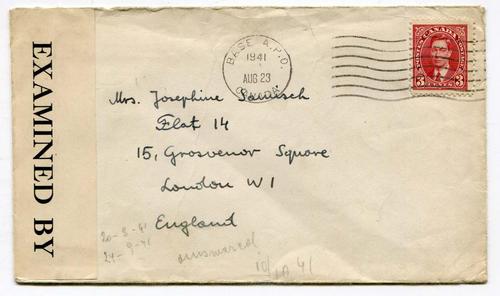 EXAMINED BY
BASE A.P.O.
1941
AUG 23
CANADA
POSTES POSTAGE
3 3
CENTS
Mrs. Josephine
Flat 14
15, Grosvenor Square
London W1
England
20-8-41
24-9-41
answered
10/10 41